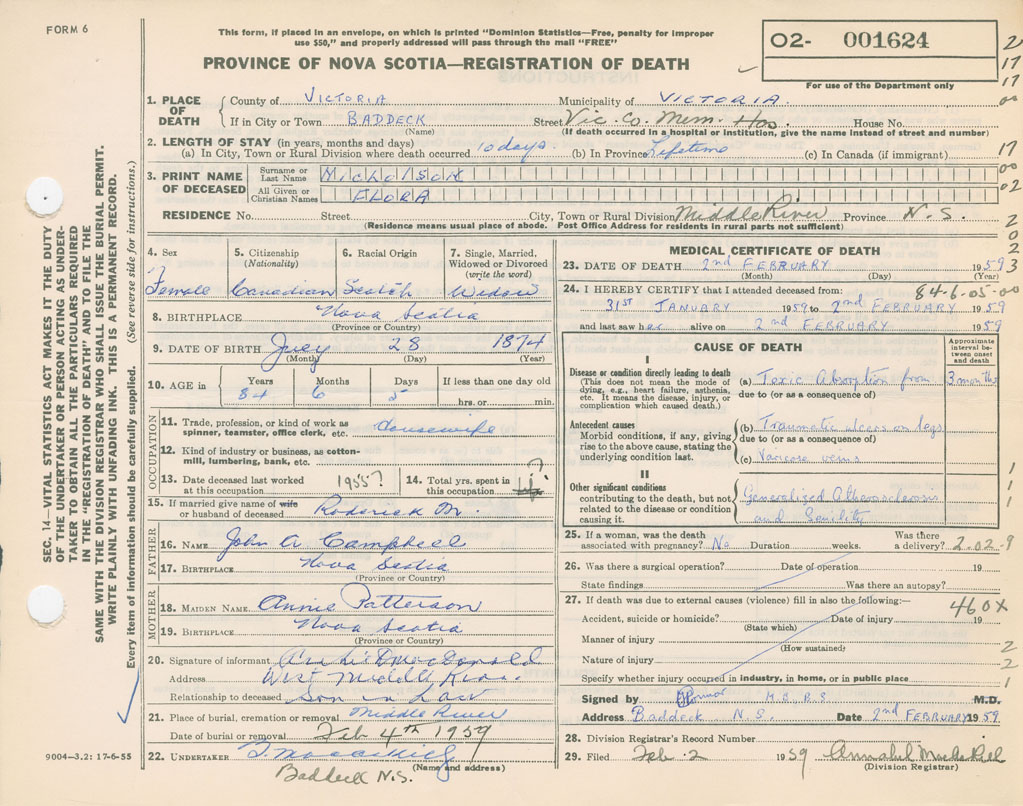 FORM 6
This form, if placed in an envelope, on which is printed "Dominion Statistics—Free, penalty for improper
use $50," and properly addressed will pass through the mail "FREE"
O2- 001624
For use of the Department only
PROVINCE OF NOVA SCOTIA—REGISTRATION OF DEATH
1. PLACE OF DEATH
County of VICTORIA Municipality of VICTORIA.
If in City or Town BADDECK Street Vic. Co. Mem. Hos. House No.
(Name) (If death occurred in a hospital or institution, give the name instead of street and number)
2. LENGTH OF STAY (in years, months and days)
(a) In City, Town or Rural Division where death occurred 10 days. (b) In Province Lifetime (c) In Canada (if immigrant)
3. PRINT NAME OF DECEASED
Surname or Last Name NICHOLSON
All Given or Christian Names FLORA
RESIDENCE No. Street City, Town or Rural Division Middle River Province N.S.
(Residence means usual place of abode. Post Office Address for residents in rural parts not sufficient)
4. Sex Female
5. Citizenship (Nationality) Canadian
6. Racial Origin Scotch
7. Single, Married, Widowed or Divorced (write the word) Widow
8. BIRTHPLACE Nova Scotia
(Province or Country)
9. DATE OF BIRTH July 28 1874
(Month) (Day) (Year)
10. AGE in Years Months Days If less than one day old
84 6 5 hrs. or min.
OCCUPATION
11. Trade, profession, or kind of work as spinner, teamster, office clerk, etc. Housewife
12. Kind of industry or business, as cotton-mill, lumbering, bank, etc.
13. Date deceased last worked at this occupation 1955?
14. Total yrs. spent in this occupation ?
15. If married give name of wife or husband of deceased Roderick M.
FATHER
16. NAME John A Campbell
17. BIRTHPLACE Nova Scotia
(Province or Country)
MOTHER
18. MAIDEN NAME Annie Patterson
19. BIRTHPLACE Nova Scotia
(Province or Country)
20. Signature of informant Archie D MacDonald
Address West Middle River.
Relationship to deceased Son in Law
21. Place of burial, cremation or removal Middle River
Date of burial or removal Feb 4th 1959
22. UNDERTAKER
(Name and address)
Baddeck N.S.
MEDICAL CERTIFICATE OF DEATH
23. DATE OF DEATH 2nd FEBRUARY 1959
(Month) (Day) (Year)
24. I HEREBY CERTIFY that I attended deceased from: 84-6-05-00
31st JANUARY 1959 to 2nd FEBRUARY 1959
and last saw her alive on 2nd FEBRUARY 1959
CAUSE OF DEATH
Approximate interval between onset and death
I
Disease or condition directly leading to death
(This does not mean the mode of dying, e.g., heart failure, asthenia, etc. It means the disease, injury, or complication which caused death.)
(a) Toxic Absorption from 3 months
due to (or as a consequence of)
Antecedent causes
Morbid conditions, if any, giving rise to the above cause, stating the underlying condition last.
(b) Traumatic ulcers on legs
due to (or as a consequence of)
(c) Varicose veins
II
Other significant conditions
contributing to the death, but not related to the disease or condition causing it.
Generalized Atherosclerosis
and Senility
25. If a woman, was the death associated with pregnancy? No Duration weeks. Was there a delivery? 2-02-9
26. Was there a surgical operation? Date of operation 19
State findings Was there an autopsy?
27. If death was due to external causes (violence) fill in also the following:— 460X
Accident, suicide or homicide? Date of injury 19
(State which)
Manner of injury
(How sustained)
Nature of injury
Specify whether injury occurred in industry, in home, or in public place
Signed by M.B. B.S. M.D.
Address Baddeck N.S. Date 2nd FEBRUARY 1959
28. Division Registrar's Record Number
29. Filed Feb. 2 1959
(Division Registrar)
SEC. 14—VITAL STATISTICS ACT MAKES IT THE DUTY
OF THE UNDERTAKER OR PERSON ACTING AS UNDER-
TAKER TO OBTAIN ALL THE PARTICULARS REQUIRED
IN THE "REGISTRATION OF DEATH" AND TO FILE THE
SAME WITH THE DIVISION REGISTRAR WHO SHALL ISSUE THE BURIAL PERMIT.
WRITE PLAINLY WITH UNFADING INK. THIS IS A PERMANENT RECORD.
Every item of information should be carefully supplied. (See reverse side for instructions.)
9004—3.2: 17-6-55
2
17
17
00
17
00
02
2
0
2
3
1
1
1
2
2
1